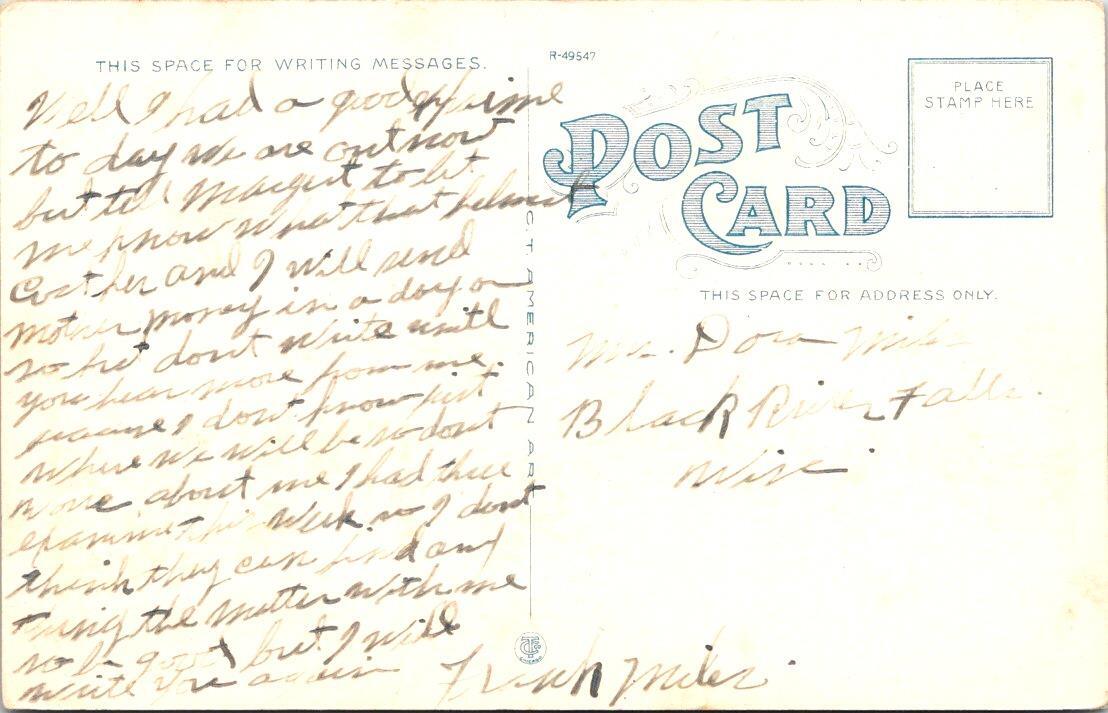 THIS SPACE FOR WRITING MESSAGES.
Well I had a good time
to day we are out now
but tell Margret to let
me know what that helmet
Cost her and I will send
mother money in a day or
so but dont write until
you hear more from me.
because I dont know just
where we will be so dont
more about me I had three
examine this week so I dont
think they can find any
thing the matter with me
so be good but I will
write you again
Frank Miles.
C.T. AMERICAN ART
R-49547
POST CARD
PLACE
STAMP HERE
THIS SPACE FOR ADDRESS ONLY.
Mrs. Dora Miles
Black River Falls.
Wis.